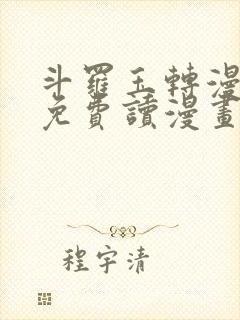 斗羅玉轉漫
免費讀漫畫
程宇清